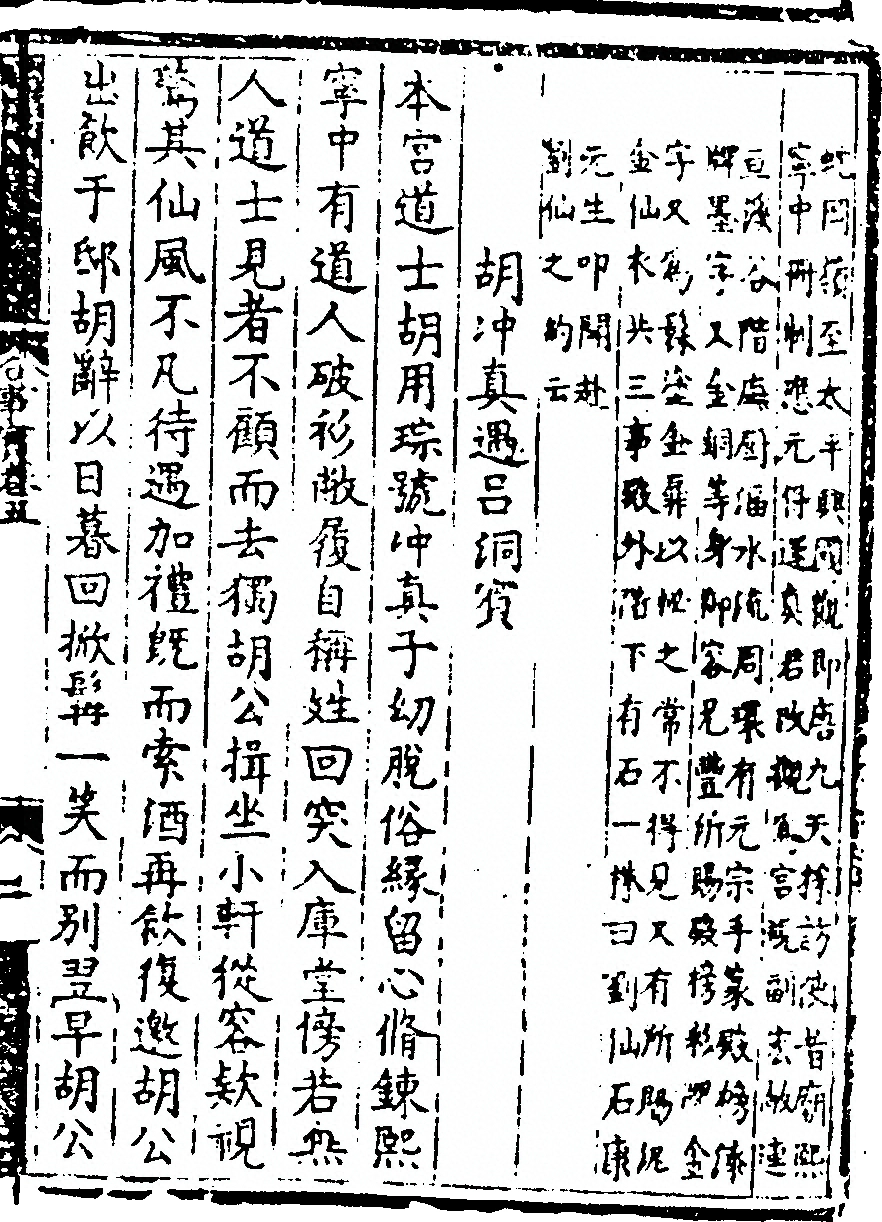 蛇岡嶺至太平興國觀即唐九天採訪使者廟熙
寧中冊制應元保運真君改觀為宮
亘溪谷階處厨湢水流周環有元宗手篆殿榜漆
牌墨字又金銅等身御容元豐所賜殿榜彩牌金
字又為塗金彝以之常不得見又有所賜泥
金仙衣共三事殿外階下有石一株曰劉仙石康
元生叩閽赴
劉仙之約云
胡冲真遇呂洞賓
本宮道士胡用琮號冲真子幼脫俗緣留心脩鍊熙
寧中有道人破衫敝履自稱姓回突入庫堂傍若無
人道士見者不顧而去獨胡公揖坐小軒從容欵視
驚其仙風不凡待遇加禮既而索酒再飲復邀胡公
出飲于邸胡辭以日暮回掀髯一笑而別翌早胡公
卷五
二